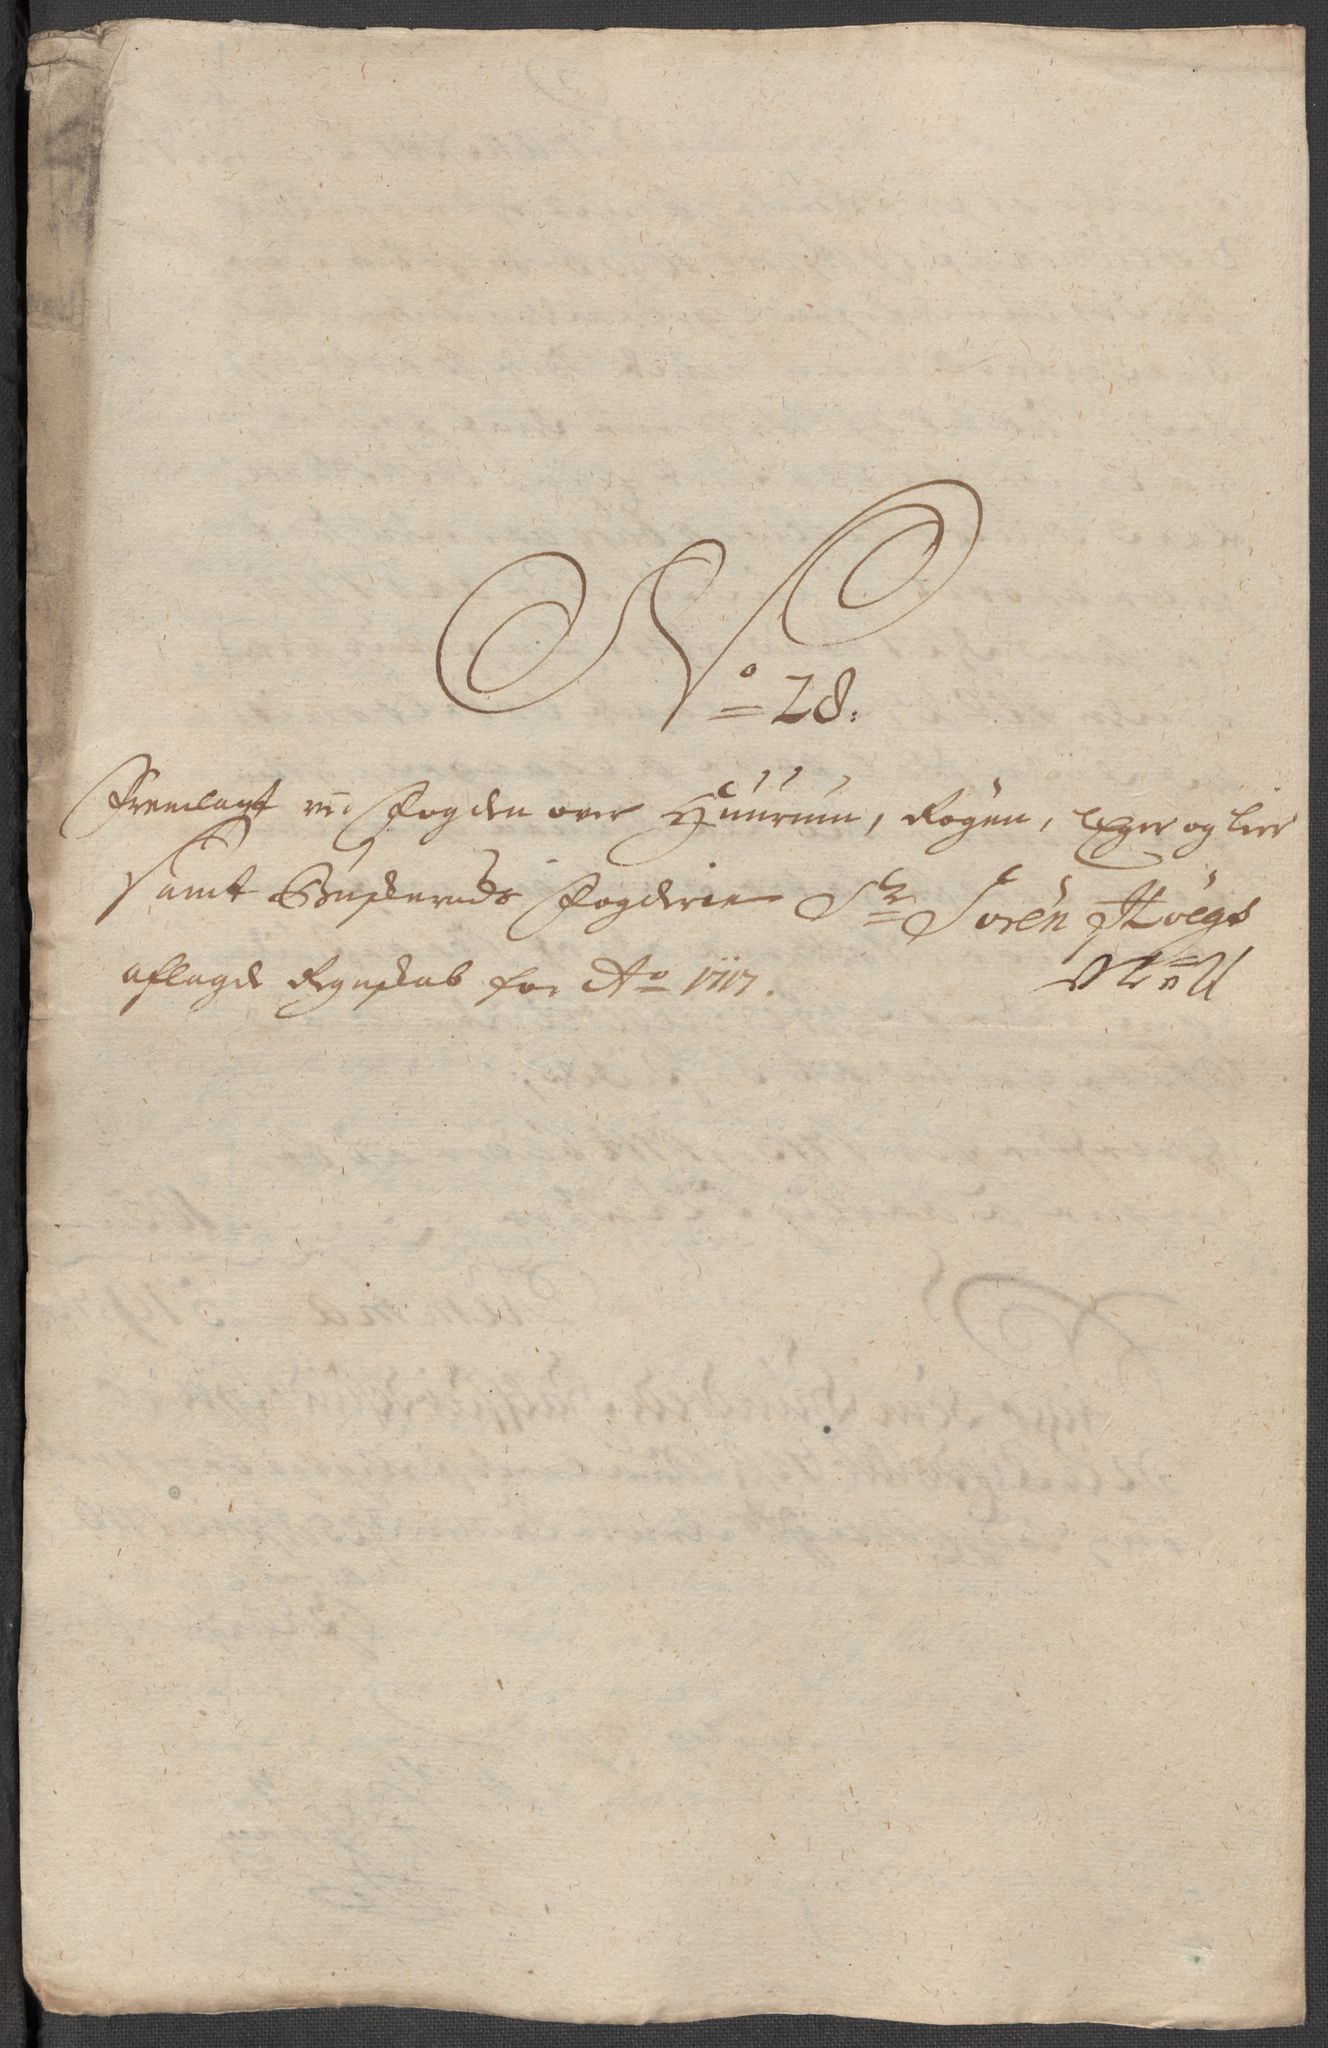 No 28:
Fremlagt ved Fogden over Huurum, Røgen, Eger og Lier
samt Buskeruds Fogderie Sr Søren Høegs
aflagde Regnskab for Ao 1717.